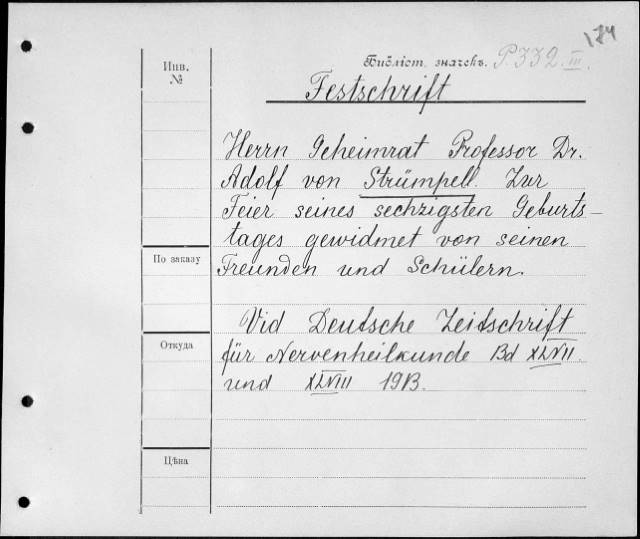 174
Инв.
№
Бібліот. значекъ. P.332.III.
Festschrift
Herrn Geheimrat Professor Dr.
Adolf von Strümpell. Zur
Feier seines sechzigsten Geburts-
tages gewidmet von seinen
Freunden und Schülern.
По заказу
Vid Deutsche Zeitschrift
Откуда
für Nervenheilkunde Bd XLVII.
und XLVIII 1913.
Цѣна